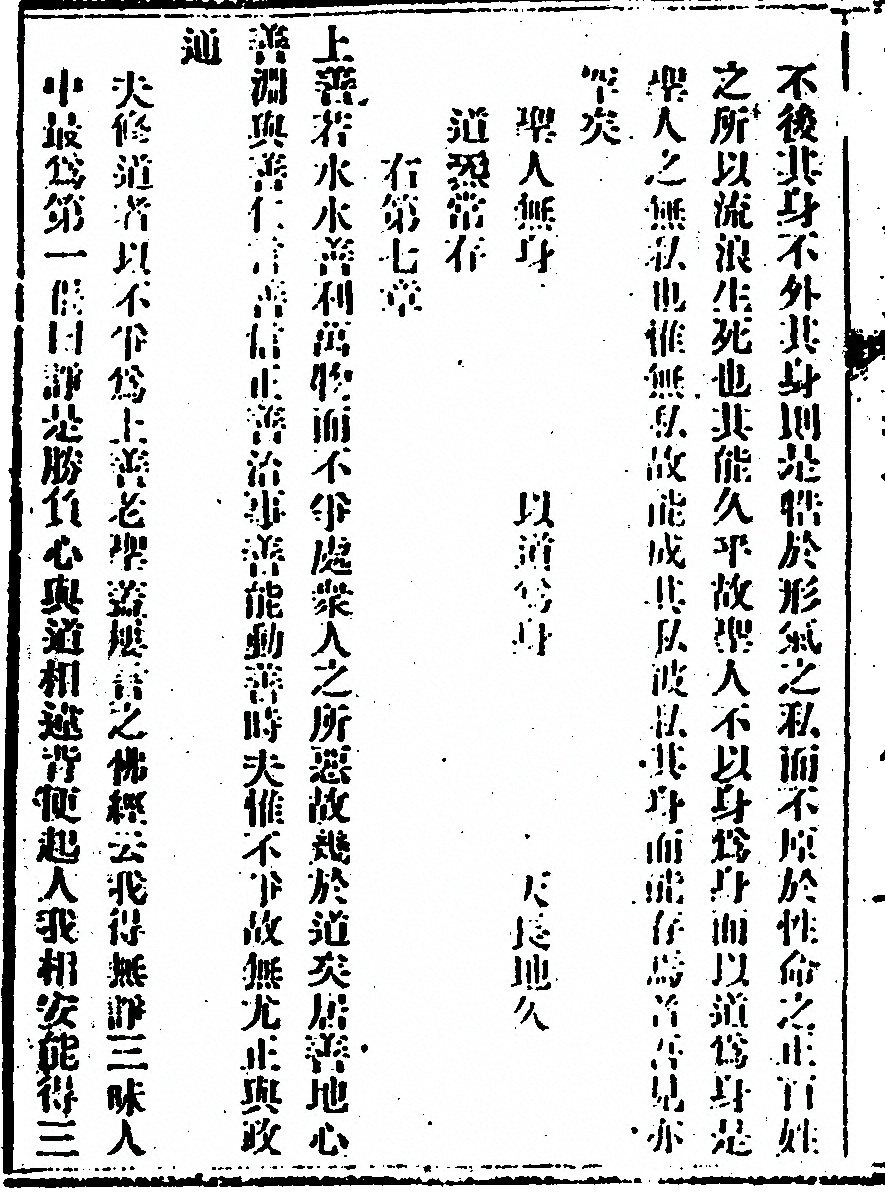 不後其身不外其身則是牿於形氣之私而不原於性命之正百姓
之所以流浪生死也其能久乎故聖人不以身爲身而以道爲身是
聖人之無私也惟無私故能成其私彼私其身而能存焉者吾見亦
罕矣
聖人無身　以道爲身　天長地久
道炁常存
右第七章
上善若水水善利萬物而不爭處衆人之所惡故幾於道矣居善地心
善淵與善仁言善信正善治事善能動善時夫惟不爭故無尤正與政
通
夫修道者以不爭爲上善老聖蓋屢言之佛經云我得無諍三昧人
中最爲第一偈曰諍是勝負心與道相違背便起人我相安能得三